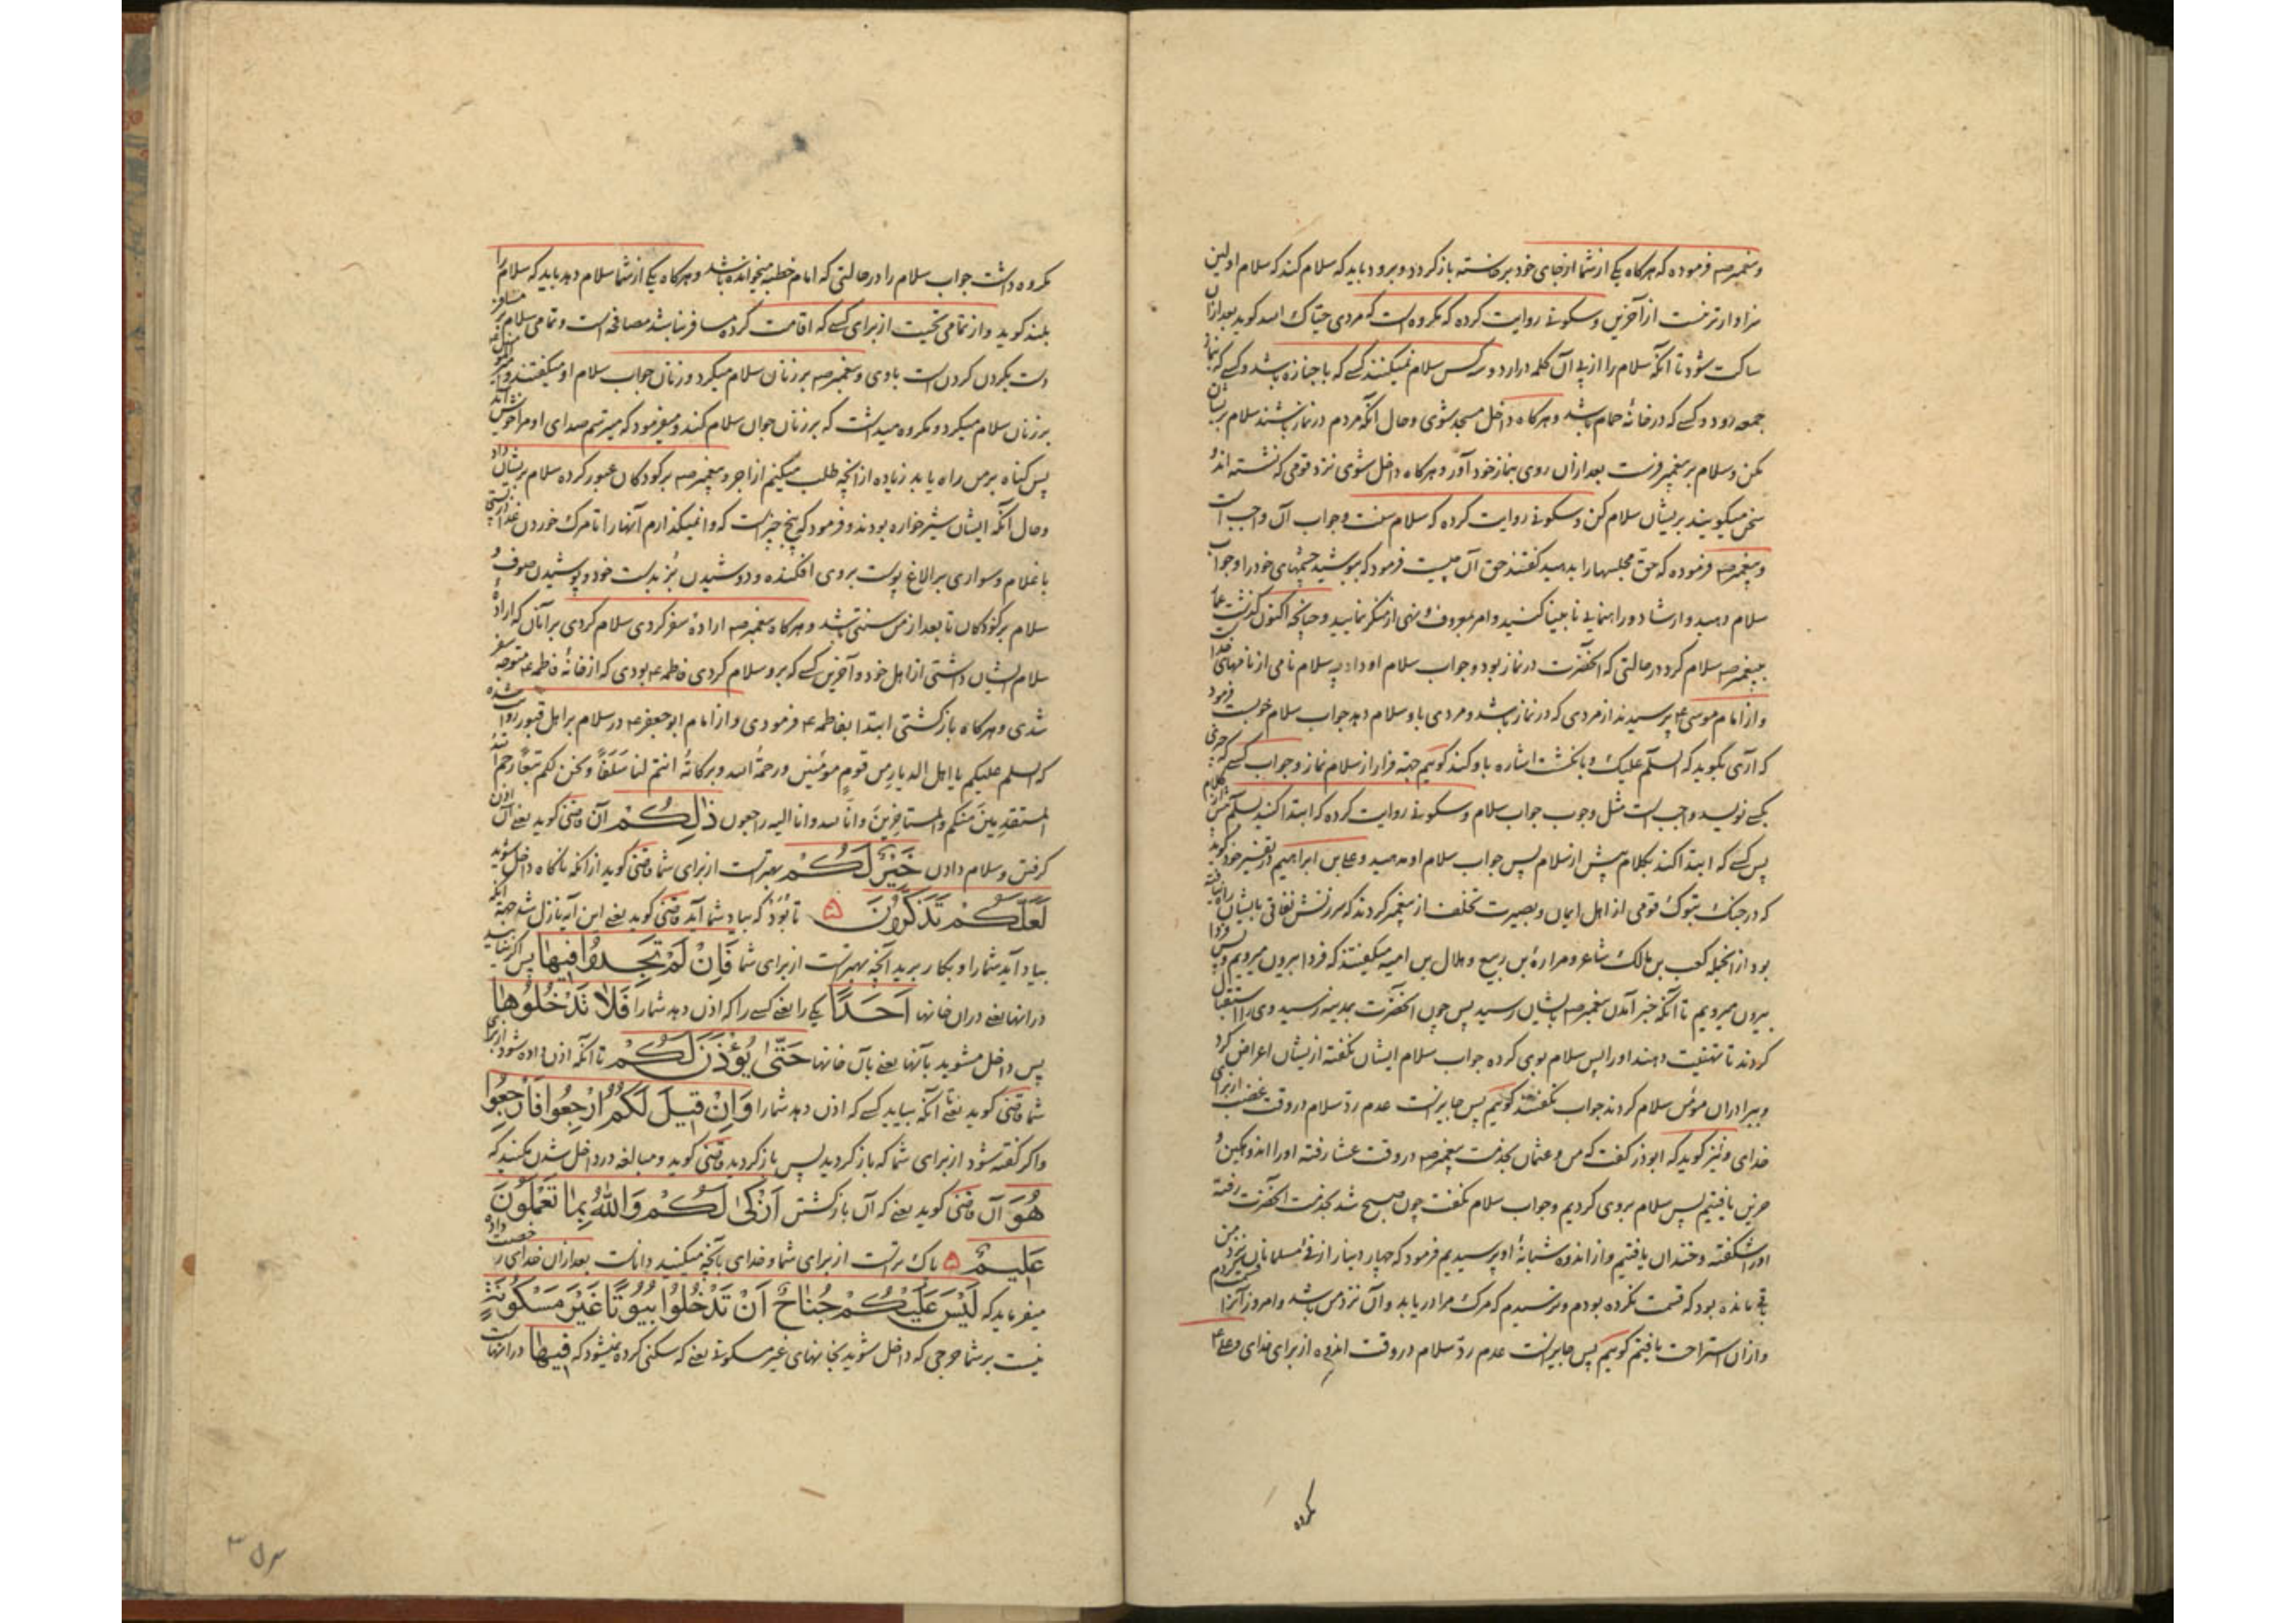 و پیغمبر صه فرموده که هرکاه یکی از شما از جای خود برخاسته باز کردد و برود باید که سلام کند که سلام اولین
سزاوارتر نیست از آخرین و سکونی روایت کرده که مکروه است که مردی حیّاک الله کوید بعد ازان
ساکت شود تا آنکه سلام را از پی آن کلمه درارد و سه کس سلام نمیکنند کسی که با جنازه باشد و کسی که بنماز
جمعه رود و کسی که در خانهٔ حمام باشد و هرکاه داخل مسجد شوی و حال آنکه مردم در نماز باشند سلام بریشان
مکن و سلام بر پیغمبر فرست بعد ازان روی بنماز خود آور و هرکاه داخل شوی نزد قومی که نشسته اند و
سخن میکویند بریشان سلام کن و سکونی روایت کرده که سلام سنت و جواب آن واجب است
و پیغمبر صه فرموده که حق مجلسها را بدهید کفتند حق آن چیست فرمود که بپوشید چشمهای خود را و جواب
سلام دهید و ارشاد و راهنمایی نابینا کنید و امر بمعروف و نهی از منکر نمایید و چنانچه اکنون کذشت عمار
بپیغمبر صه سلام کرد در حالتی که آنحضرت در نماز بود و جواب سلام او داد به سلام نامی از نامهای خدا است
و از امام موسی ع پرسیدند از مردی که در نماز باشد و مردی باو سلام دهد جواب سلام خوبست فرمود
که آری بگوید که السلم علیک و بانکشت اشاره باو کند کوییم جهة فرار از سلام نماز و جواب کسی که چیزی
بکسی نویسد واجب است مثل وجوب جواب سلام و سکونی روایت کرده که ابتدا کنید بسلم پیش از کلام
پس کسی که ابتدا کند بکلام پیش از سلام پس جواب سلام او مدهید و علی بن ابراهیم در تفسیر خود کوید
که در جنک تبوک قومی از اهل ایمان و بصیرت تخلف از پیغمبر کردند که سرزنش نفاق بایشان راه نیافته
بود از انجمله کعب بن مالک شاعر و مرارة بن ربیع و هلال بن امیه میکفتند که فردا بیرون میرویم و پس فردا
بیرون میرویم تا آنکه خبر آمدن پیغمبر صه بایشان رسید پس چون آنحضرت بمدینه رسید وی را استقبال
کردند تا تهنیت دهند او را پس سلام بوی کرده جواب سلام ایشان نکفته از یشان اعراض کرد
و ببرادران مؤمن سلام کردند جواب نکفتند کوییم پس جایز است عدم ردّ سلام در وقت غضب از برای
خدای و نیز کوید که ابوذر کفت که من و عثمان بخدمت پیغمبر صه در وقت عشا رفته او را اندوهکین و
حزین یافتیم پس سلام بروی کردیم و جواب سلام نکفت چون صبح شد بخدمت آنحضرت رفته
او را شکفته و خندان یافتیم و از اندوه شبانهٔ او پرسیدیم فرمود که چهار دینار از فئ مسلمانان نزد من
باقی مانده بود که قسمت نکرده بودم و ترسیدم که مرک مرا دریابد و آن نزد من باشد و امروز آنرا قسمت کردم
و ازان استراحت یافتم کوییم پس جایز است عدم ردّ سلام در وقت اندوه از برای خدای و علی ع
مکروه
مکروه داشت جواب سلام را در حالتی که امام خطبه میخوانده باشد و هرکاه یکی از شما سلام دهد باید که سلام را
بلند کوید و از تمامی تحیت از برای کسی که اقامت کرده مسافر نباشد مصافحه است و تمامی سلام بر مسافر
دست بکردن کردن است با وی و پیغمبر صه بر زنان سلام میکرد و زنان جواب سلام او میکفتند و امیر المؤمنین ع
بر زنان سلام میکرد و مکروه میداشت که بر زنان جوان سلام کند و میفرمود که میترسم صدای او مرا خوش آید
پس کناه بر من راه یابد زیاده از آنچه طلب میکنم از اجر و پیغمبر صه بر کودکان عبور کرده سلام بریشان داد
و حال آنکه ایشان شیرخواره بودند و فرمود که پنج چیز است که وانمیکذارم آنها را تا مرک خوردن غذا
با غلام و سواری بر الاغ پوست بروی افکنده و دوشیدن بُز بدست خود و پوشیدن صوف و
سلام بر کودکان تا بعد از من سنتی باشد و هرکاه پیغمبر صه ارادهٔ سفر کردی سلام کردی بر آنان که ارادهٔ
سلام ایشان داشتی از اهل خود و آخرین کسی که برو سلام کردی فاطمه ع بودی که از خانهٔ فاطمه ع متوجه سفر
شدی و هرکاه بازکشتی ابتدا بفاطمه ع فرمودی و از امام ابوجعفر ع در سلام بر اهل قبور روایت شده
که السلم علیکم یا اهل الدیار من قوم مؤمنین و رحمة الله و برکاتهٔ انتم لنا سَلَفاً و نحن لکم تبعاً رحم الله
المستقدمین منکم و المستاخرین و انّا لله و انا الیه راجعون ذٰلِکُمْ آن قاضی کوید یعنی آن اذن
کرفتن و سلام دادن خَیْرٌ لَکُمْ بهتر است از برای شما قاضی کوید از آنکه ناکاه داخل شوید
لَعَلَّکُمْ تَذَکَّرُونَ تا بُوَد که بیاد شما آید قاضی کوید یعنی این آیه نازل شد جهة آنکه
بیاد آید شما را و بکار برید آنچه بهتر است از برای شما فَاِنْ لَمْ تَجِدُوا فیها پس اکر نیابید
در آنها یعنی دران خانها اَحَدًا یکی را یعنی کسی را که اذن دهد شما را فَلا تَدْخُلُوها
پس داخل مشوید بآنها یعنی بآن خانها حَتّٰی یُؤْذَنَ لَکُمْ تا آنکه اذن داده شود از برای
شما قاضی کوید یعنی تا آنکه بیاید کسی که اذن دهد شما را وَاِنْ قیلَ لَکُمُ ارْجِعُوا فَارْجِعُوا
و اکر کفته شود از برای شما که باز کردید پس باز کردید قاضی کوید و مبالغه در داخل شدن مکنید که
هُوَ آن قاضی کوید یعنی که آن بازکشتن اَزْکٰی لَکُمْ وَاللهُ بِما تَعْمَلُونَ
عَلیمٌ پاک تر است از برای شما و خدای بآنچه میکنید داناست بعد ازان خدای رخصت داده
میفرماید که لَیْسَ عَلَیْکُمْ جُناحٌ اَنْ تَدْخُلُوا بُیُوتًا غَیْرَ مَسْکُونَةٍ
نیست بر شما حرجی که داخل شوید بخانهای غیر مسکونی یعنی که سکنی کرده نمیشود که فیها در آنهاست